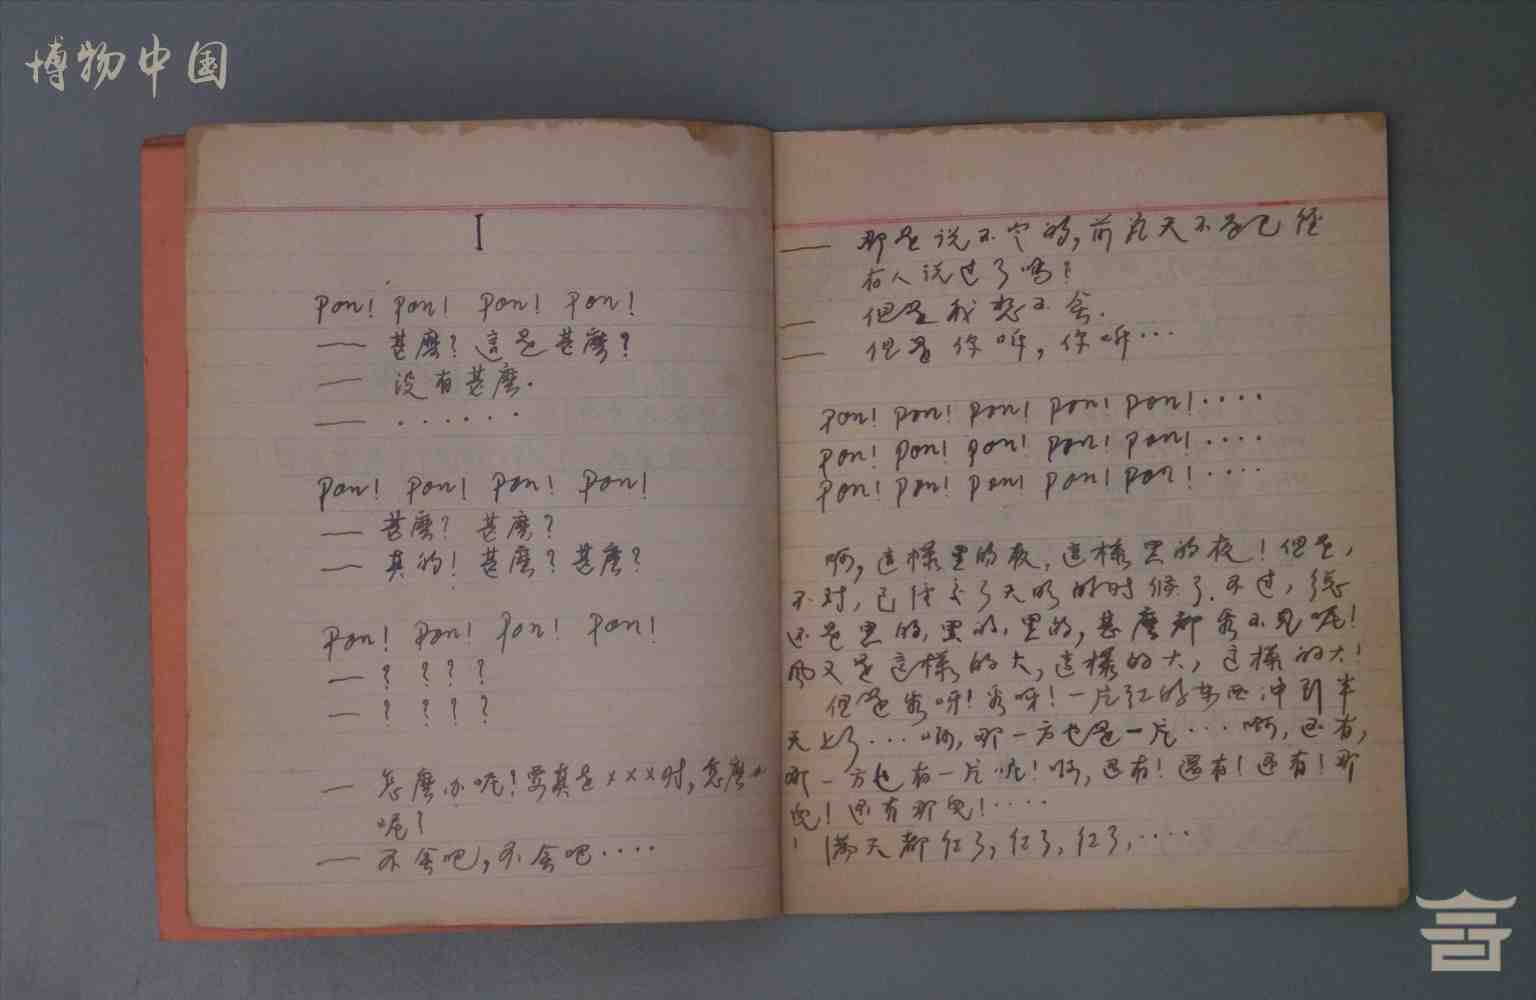 博物中国
I
Pon! Pon! Pon! Pon!
— 甚麼? 這是甚麼?
— 没有甚麼.
— ······
Pon! Pon! Pon! Pon!
— 甚麼? 甚麼?
— 真的! 甚麼? 甚麼?
Pon! Pon! Pon! Pon!
— ? ? ? ?
— ? ? ? ?
— 怎麼办呢! 要真是×××时, 怎麼办
呢?
— 不会吧, 不会吧····
— 那是说不定的, 前几天不是已经
有人说过了嗎?
— 但是我想不会.
— 但是你听, 你听···
Pon! Pon! Pon! Pon! Pon!····
Pon! Pon! Pon! Pon! Pon!····
Pon! Pon! Pon! Pon! Pon!····
啊, 這樣黑的夜, 這樣黑的夜! 但是,
不对, 已经是了天明的时候了. 不过, 总
还是黑的, 黑的, 黑的, 甚麼都看不見呢!
風又是這樣的大, 這樣的大, 這樣的大!
但是看呀! 看呀! 一片红的东西冲到半
天上了··· 啊, 那一方也是一片··· 啊, 还有,
那一方也有一片呢! 啊, 还有! 還有! 还有! 那
兒! 还有那兒!····
满天都红了, 红了, 红了,····